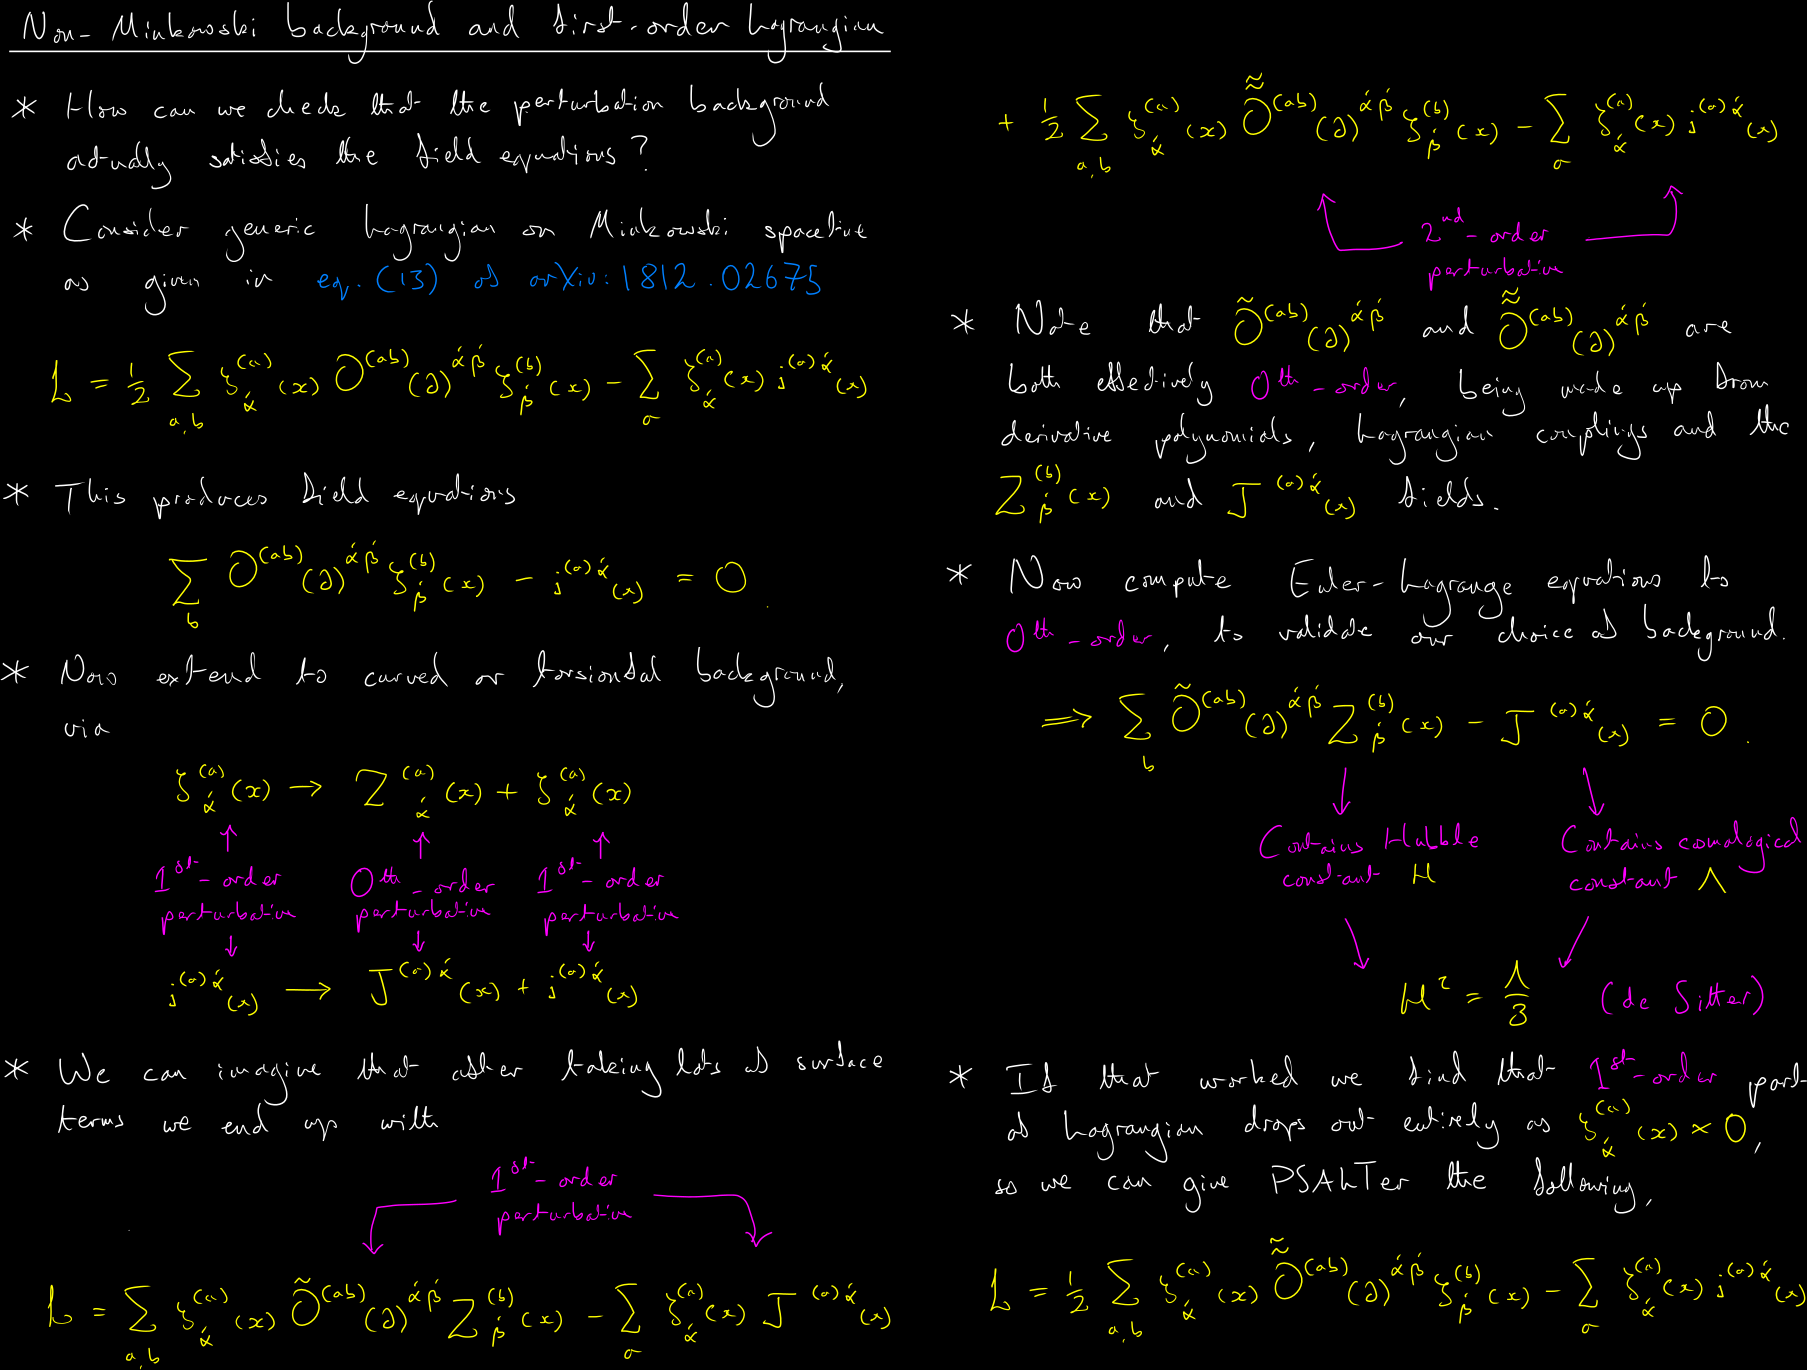 Non-Minkowski background and first-order Lagrangian
* How can we check that the perturbation background
actually satisfies the field equations?
* Consider generic Lagrangian on Minkowski spacetime
as given in eq. (13) of arXiv:1812.02675
L = ½ ∑_{a,b} ζ^{(a)}_{ά}(x) O^{(ab)}(∂)^{άβ́} ζ^{(b)}_{β́}(x) − ∑_a ζ^{(a)}_{ά}(x) j^{(a)ά}(x)
* This produces field equations
∑_b O^{(ab)}(∂)^{άβ́} ζ^{(b)}_{β́}(x) − j^{(a)ά}(x) = 0.
* Now extend to curved or torsionful background,
via
ζ^{(a)}_{ά}(x) → Z^{(a)}_{ά}(x) + ζ^{(a)}_{ά}(x)
1st-order perturbative 0th-order perturbative 1st-order perturbative
j^{(a)ά}(x) → J^{(a)ά}(x) + j^{(a)ά}(x)
* We can imagine that after taking lots of surface
terms we end up with
1st-order
perturbative
L = ∑_{a,b} ζ^{(a)}_{ά}(x) Õ^{(ab)}(∂)^{άβ́} Z^{(b)}_{β́}(x) − ∑_a ζ^{(a)}_{ά}(x) J^{(a)ά}(x)
+ ½ ∑_{a,b} ζ^{(a)}_{ά}(x) Õ̃^{(ab)}(∂)^{άβ́} ζ^{(b)}_{β́}(x) − ∑_a ζ^{(a)}_{ά}(x) j^{(a)ά}(x)
2nd-order
perturbative
* Note that Õ^{(ab)}(∂)^{άβ́} and Õ̃^{(ab)}(∂)^{άβ́} are
both effectively 0th-order, being made up from
derivative polynomials, Lagrangian couplings and the
Z^{(b)}_{β́}(x) and J^{(a)ά}(x) fields.
* Now compute Euler-Lagrange equations to
0th-order, to validate our choice of background.
⟹ ∑_b Õ^{(ab)}(∂)^{άβ́} Z^{(b)}_{β́}(x) − J^{(a)ά}(x) = 0.
Contains Hubble Contains comological
constant H constant Λ
H² = Λ/3 (de Sitter)
* If that worked we find that 1st-order part
of Lagrangian drops out entirely as ζ^{(a)}_{ά}(x) × 0,
so we can give PSALTer the following,
L = ½ ∑_{a,b} ζ^{(a)}_{ά}(x) Õ̃^{(ab)}(∂)^{άβ́} ζ^{(b)}_{β́}(x) − ∑_a ζ^{(a)}_{ά}(x) j^{(a)ά}(x)